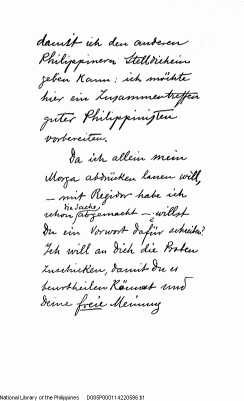 damit ich den anderen
Philippinern Stelldichein
geben kann; ich möchte
hier ein Zusammentreffen
guter Philippinisten
vorbereiten.
Da ich allein mein
Morga abdrücken lassen will,
– mit Regidor habe ich
die Sache
schon abgemacht – willst
Du ein Vorwort dafür schreiben?
Ich will an Dich die Proben
zuschicken, damit Du es
beurtheilen kannst und
deine freie Meinung
National Library of the Philippines D005P000114220596.tif